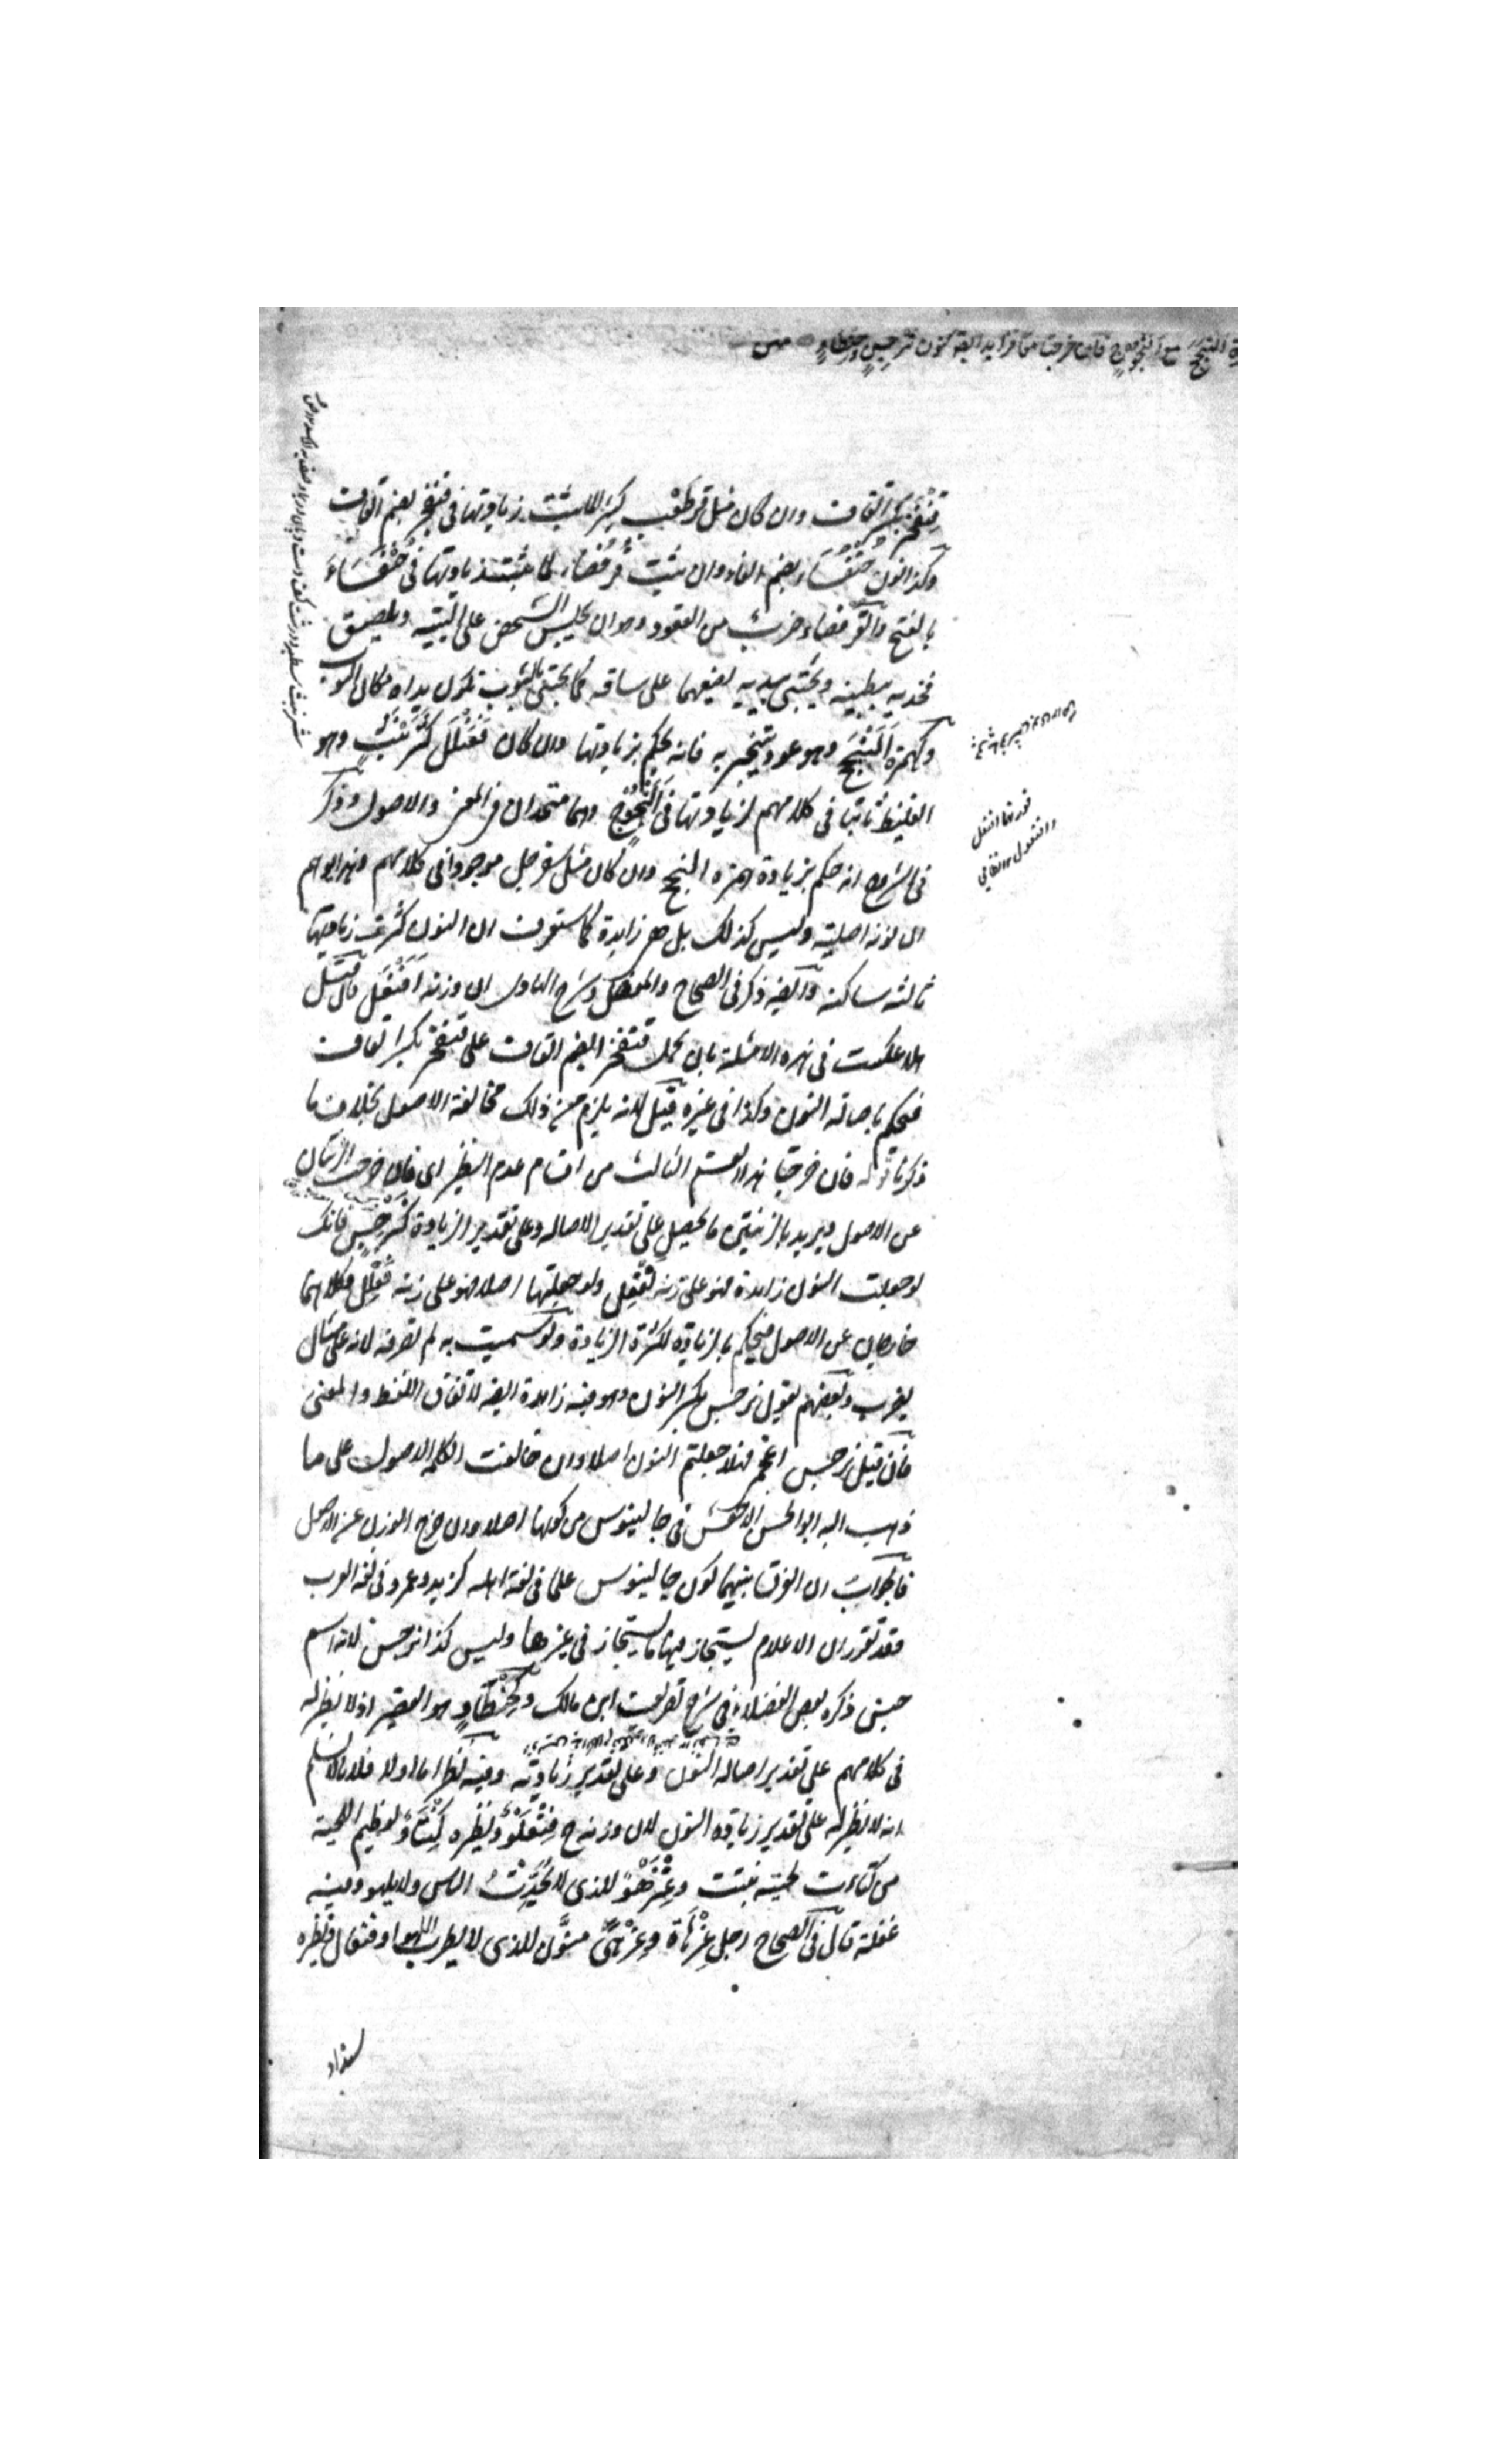 النجج مع النجوج فان خرجتا معا فزايد ايضا كنون نرجس وحنطاو
قِنْفَخْر بكسر القاف وان كان مثل قرطعب كثيرا لما ثبت زيادتها فى قنفخر بضم القاف
وكذا نون خنفساء بضم الفاء وان ثبت قرفصاء لما ثبت زيادتها فى خنفساء
بالفتح والقرفصاء ضرب من القعود وهو ان يجلس الشخص على اليتيه ويلصق
فخذيه ببطنه ويحتبى بيديه يضعهما على ساقه كما يحتبى بالثوب تكون يداه مكان الثوب
وكهمزة اَلَنْجَج وهو عود يتبخر به فانه يحكم بزيادتها وان كان فَعَنْلَل كشَرَنْبَث وهو
الغليظ ثابتا فى كلامهم لزيادتها فى اَلَنْجُوج وهما متحدان فى المعنى والاصول وذكر
فى الشروح انه حكم بزيادة همزه النجج وان كان مثل سفرجل موجودا فى كلامهم وهذا يوهم
ان نونه اصلية وليس كذلك بل هى زايدة كما ستعرف ان النون كثرت زيادتها
ثالثه ساكنه وايضا ذكر فى الصحاح والمفصل وشرح الهادى ان وزنه افنعل فان قيل
هلا عكست فى هذه الامثلة بان يحمل قنفخر بضم القاف على قنفخر بكسر القاف
فيحكم باصالة النون وكذا فى غيره قيل لانه يلزم من ذلك مخالفة الاصول بخلاف ما
ذكرنا قوله فان خرجتا هذا القسم الثالث من اقسام عدم النظير اى فان خرجت الزنتان
عن الاصول ويريد بالزنتين ما يحصل على تقدير الاصاله وعلى تقدير الزيادة كنَرْجِس فانك
لو جعلت النون زايدة فهو على زنه نَفْعِل ولو جعلتها اصلا فهو على زنه فَعْلِل وكلاهما
خارجان عن الاصول فيحكم بالزيادة لكثرة الزيادة ولو سميت به لم تصرفه لانه على مثال
يضرب وبعضهم يقول نرجس بكسر النون وهو فيه زايدة ايضا لاتفاق اللفظ والمعنى
فان قيل نرجس اعجمى فهلا جعلتم النون اصلا وان خالفت الكلمه الاصول على ما
ذهب اليه ابو الحسن الاخفش فى جالينوس من كونها اصلا وان خرج الوزن عن الاصول
فالجواب ان الفرق بينهما لكون جالينوس علما فى لغة اهله كزيد وعمرو فى لغة العرب
وقد تقرر ان الاعلام يستجاز فيها ما لا يستجاز فى غيرها وليس كذا نرجس لانه اسم
جنس ذكره بعض الفضلاء فى شرح تصريف ابن مالك وكحِنْطَأْوٍ هو القصير اذ لا نظير له
فى كلامهم على تقدير اصاله النون وعلى تقدير زيادته وفيه نظر اما اولا فلانا لا نسلم
انه لا نظير له على تقدير زياده النون لان وزنه ح فِنْعَلْوٌ ونظيره كِنْثَأْوٌ لعظيم اللحية
من كثأت لحيته نبتت وعِنْزَهْوٌ للذى لا يحدث الناس ولا يلهو وفيه
غفلة قال فى الصحاح رجل عِزْهاة وعِزْهًى منوّن للذى لا يطرب للهو او فنعال ونظيره
سنداو